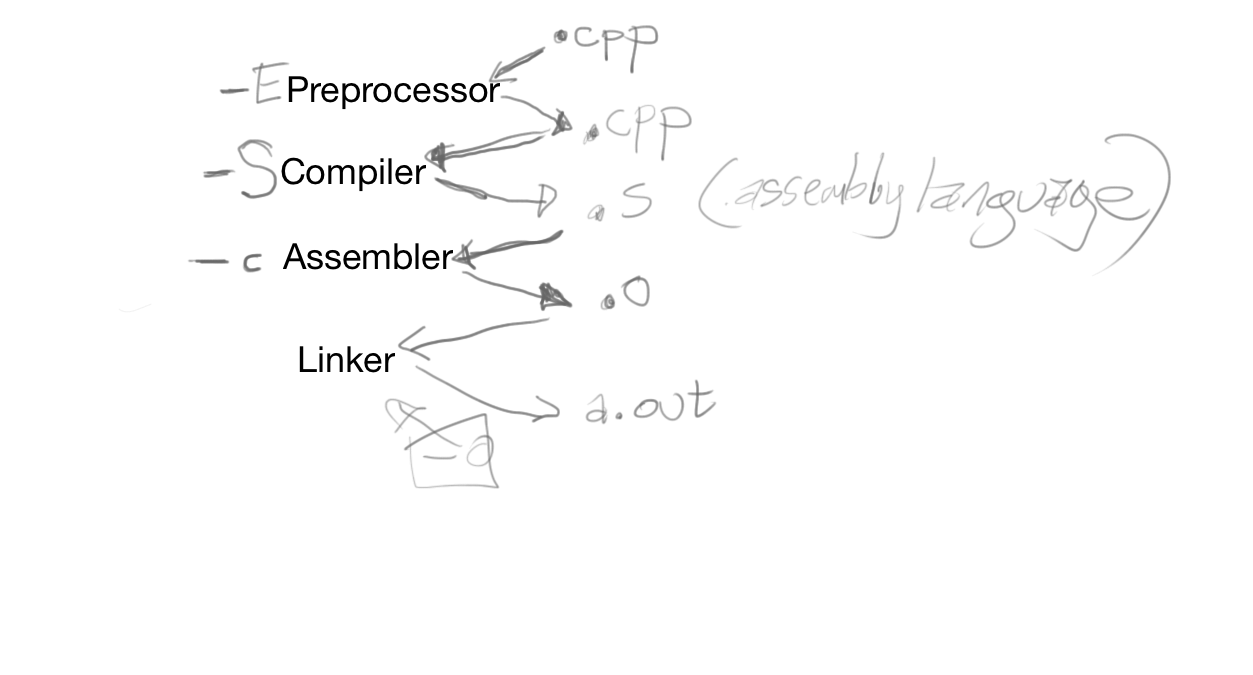 .cpp
-E Preprocessor
.cpp
-S Compiler
.S (assembly language)
-c Assembler
.O
Linker
a.out